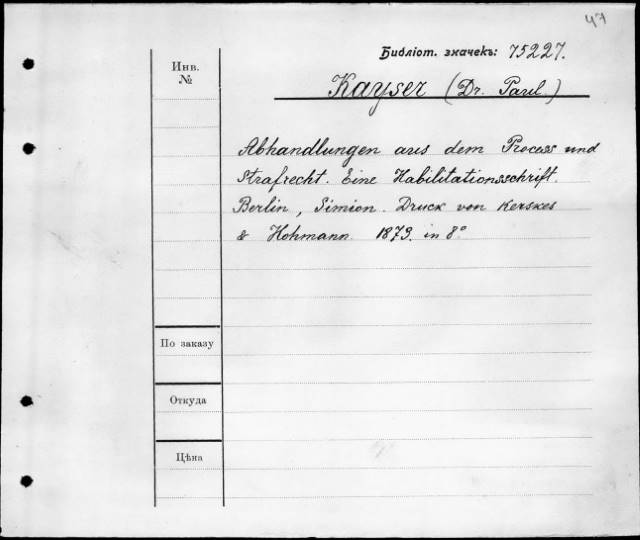 47
Библіот. значекъ: 75227.
Инв.
№
Kayser (Dr. Paul.)
Abhandlungen aus dem Process und
Strafrecht. Eine Habilitationsschrift.
Berlin, Simion. Druck von Kerskes
& Hohmann. 1873. in 8°
По заказу
Откуда
Цѣна